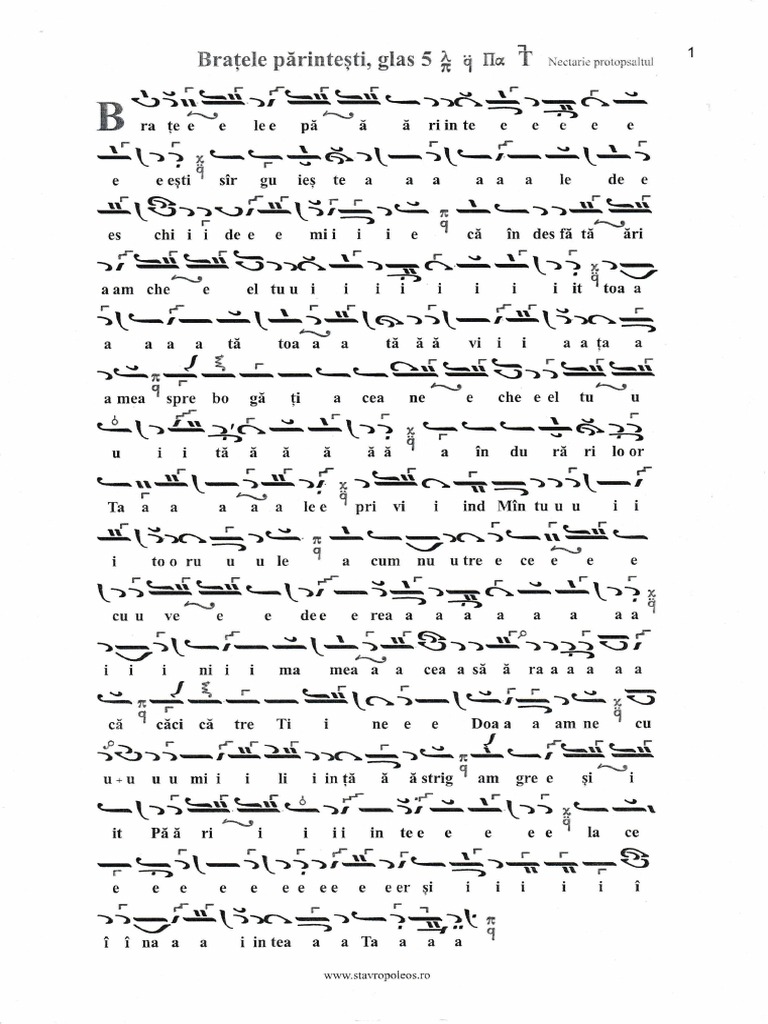 Brațele părintești, glas 5 λ π q Πα Nectarie protopsaltul 1
B ra țe e e le e pă ă ă ri in te e e e e e
e e ești sîr gu ieș te a a a a a a le de e
es chi i i de e e mi i i i e că în des fă tă ări
a am che e el tu u i i i i i i i i it toa a
a a a a tă toa a a tă ă ă vi i i a a ța a
a mea spre bo gă ți a cea ne e che e el tu u
u i i tă ă ă ă ă ă a în du ră ri lo or
Ta a a a a a le e pri vi i ind Mîn tu u u i i
i to o ru u u le a cum nu u tre e ce e e e
cu u ve e e de e e rea a a a a a a a
i i i ni i i ma mea a a cea a să ă ra a a a a a
că căci că tre Ti i ne e e Doa a a am ne cu
u + u u u mi i i li i in ță ă ă strig am gre e și i
it Pă ă ri i i i i in te e e e e e la ce
e e e e e e e e e e er și i i i i i î
î î na a a i in tea a a Ta a a a
www.stavropoleos.ro